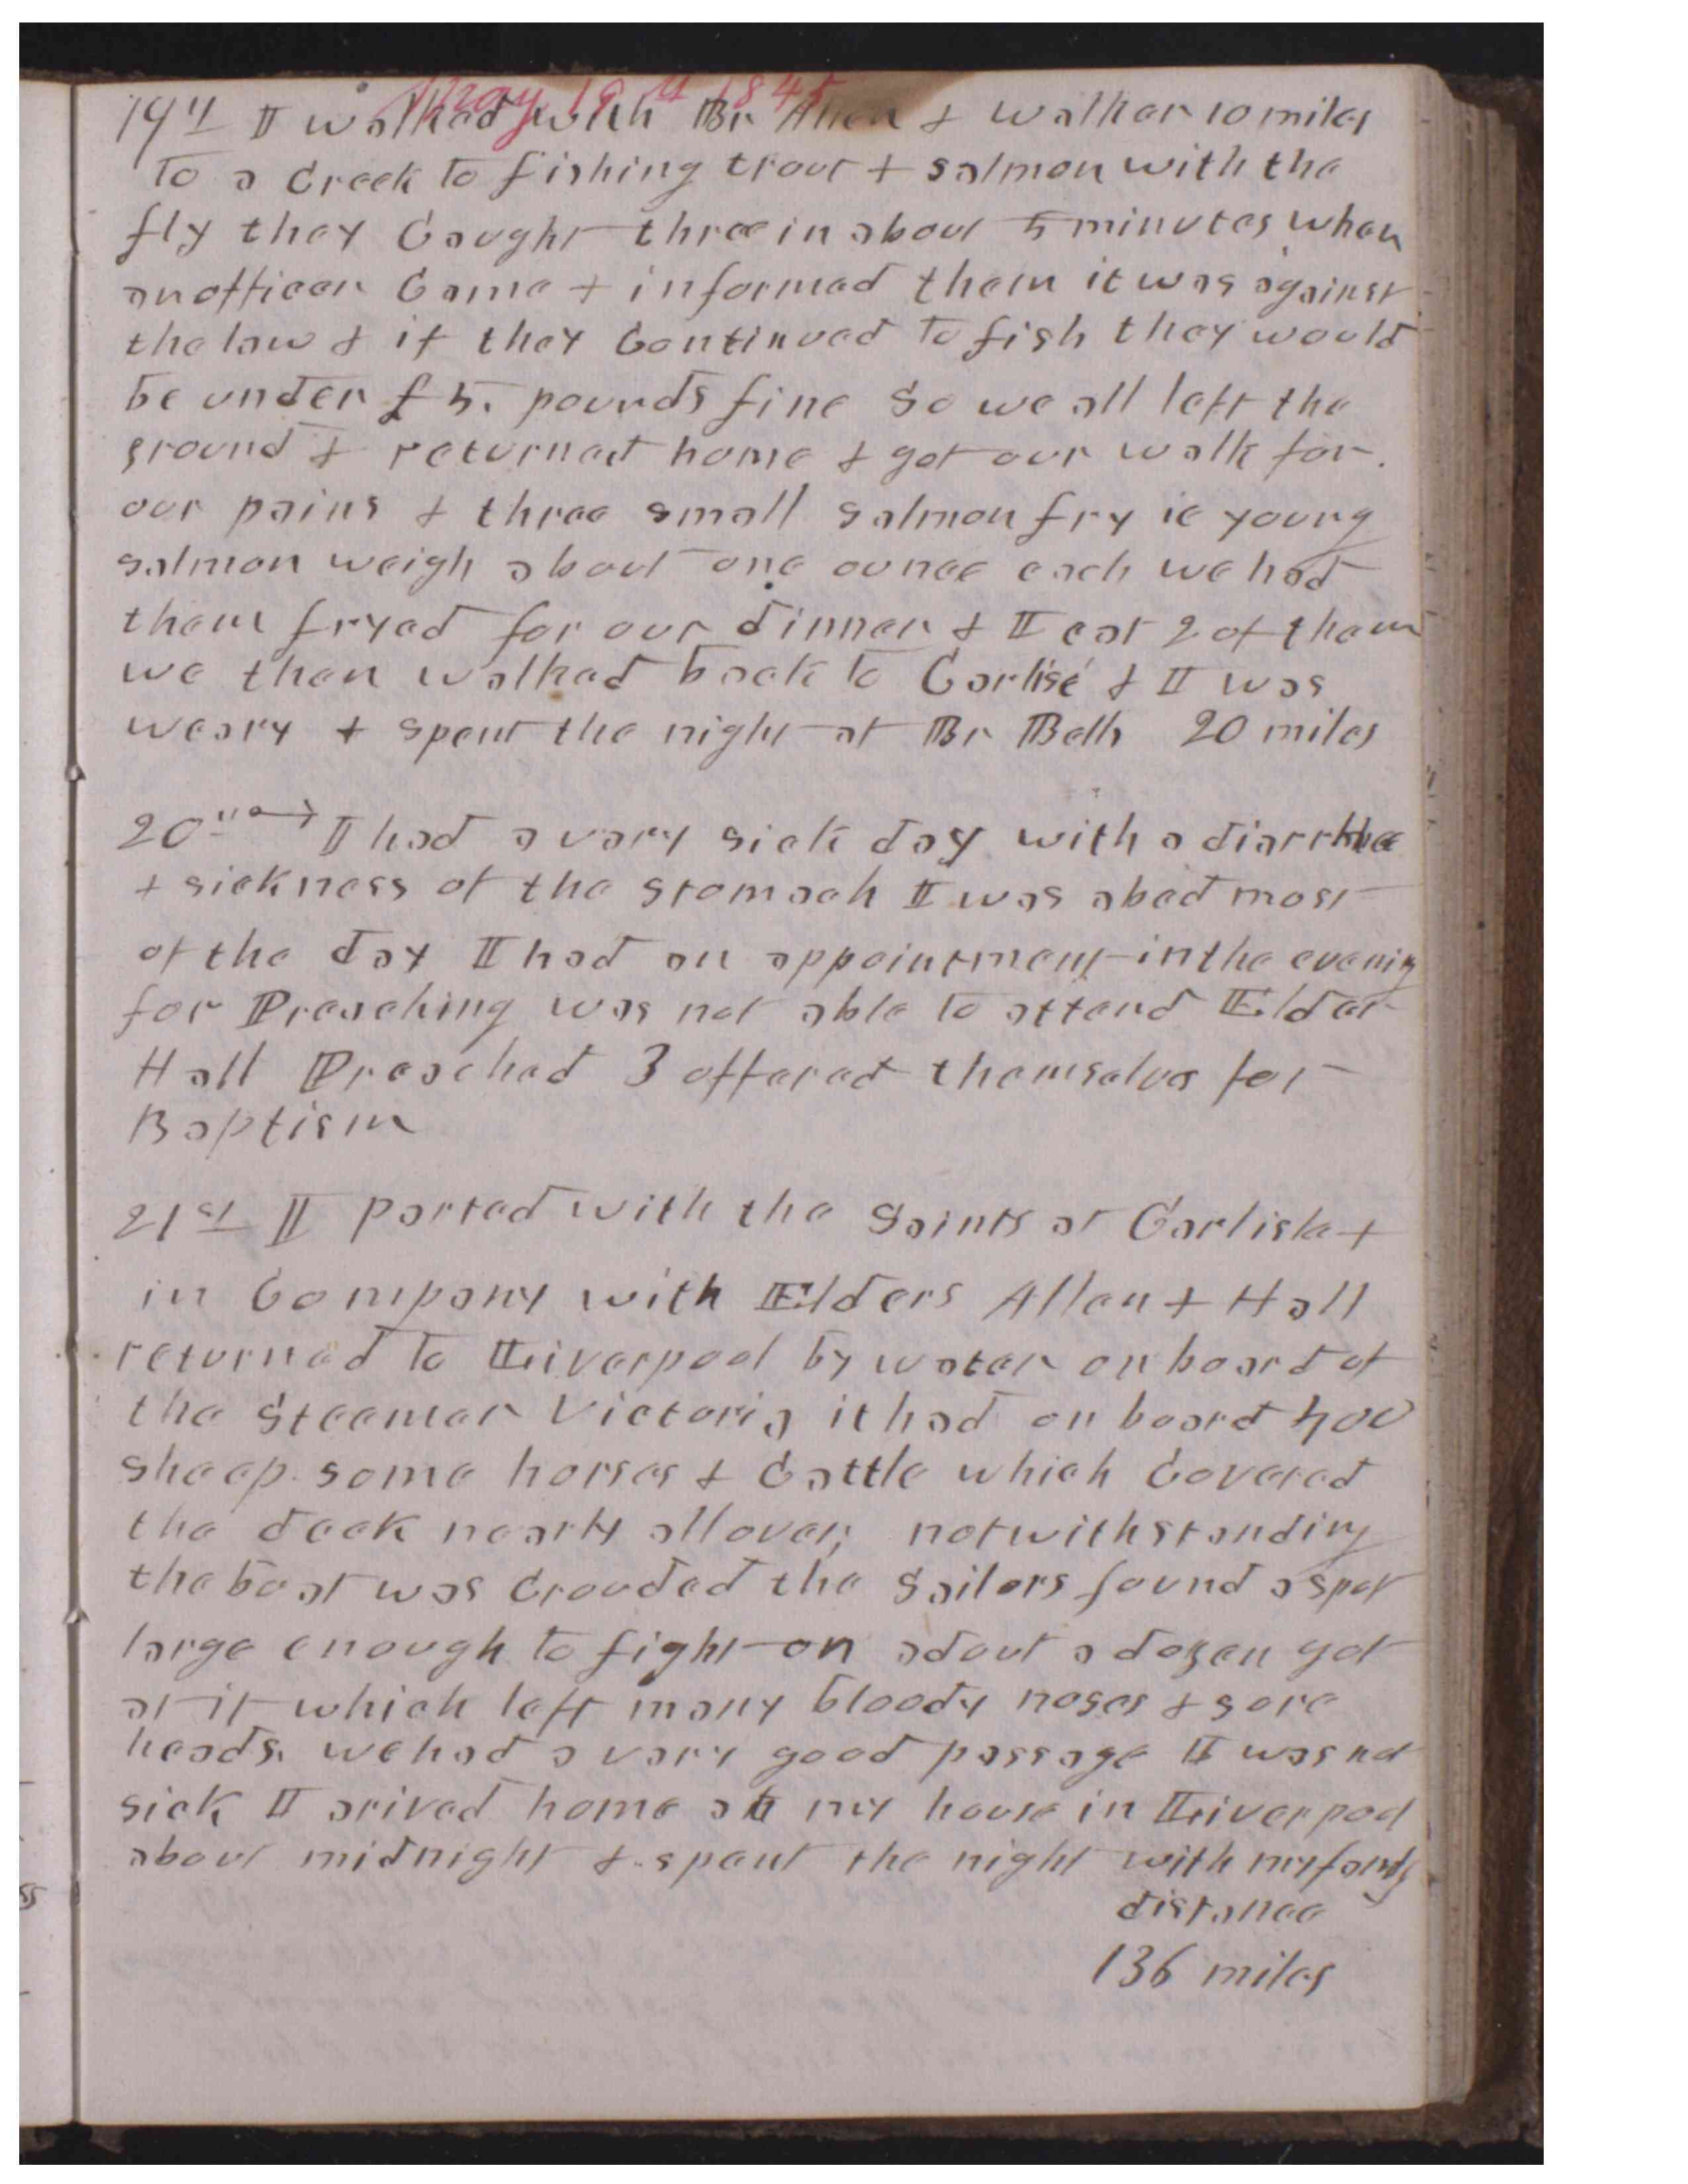 May 19th 1845
19th I walked with Br Allen & Walker 10 miles
to a Creek to fishing trout & salmon with the
fly they Caught three in about 5 minutes when
an officer Came & informed them it was against
the law & if they Continued to fish they would
be under £5. pounds fine So we all left the
ground & returned home & got our walk for
our pains & three small salmon fry ie young
salmon weigh about one ounce each we had
them fryed for our dinner & I eat 2 of them
we then walked back to Carlise & I was
weary & spent the night at Br Bells 20 miles
20th I had a very sick day with a diarrhea
& sickness of the stomach I was abed most
of the day I had an appointment in the evening
for Preaching was not able to attend Elder
Hall Preached 3 offered themselves for
Baptism
21st I parted with the Saints at Carlisle &
in Company with Elders Allen & Hall
returned to Liverpool by water on board of
the Steemer Victoria it had on board 400
sheep some horses & Cattle which Covered
the deck nearly all over, notwithstanding
the boat was Crouded the Sailors found a spot
large enough to fight on about a dozen got
at it which left many bloody noses & sore
heads. we had a very good passage I was not
sick I arived home at my house in Liverpool
about midnight & spent the night with my family
distance
136 miles